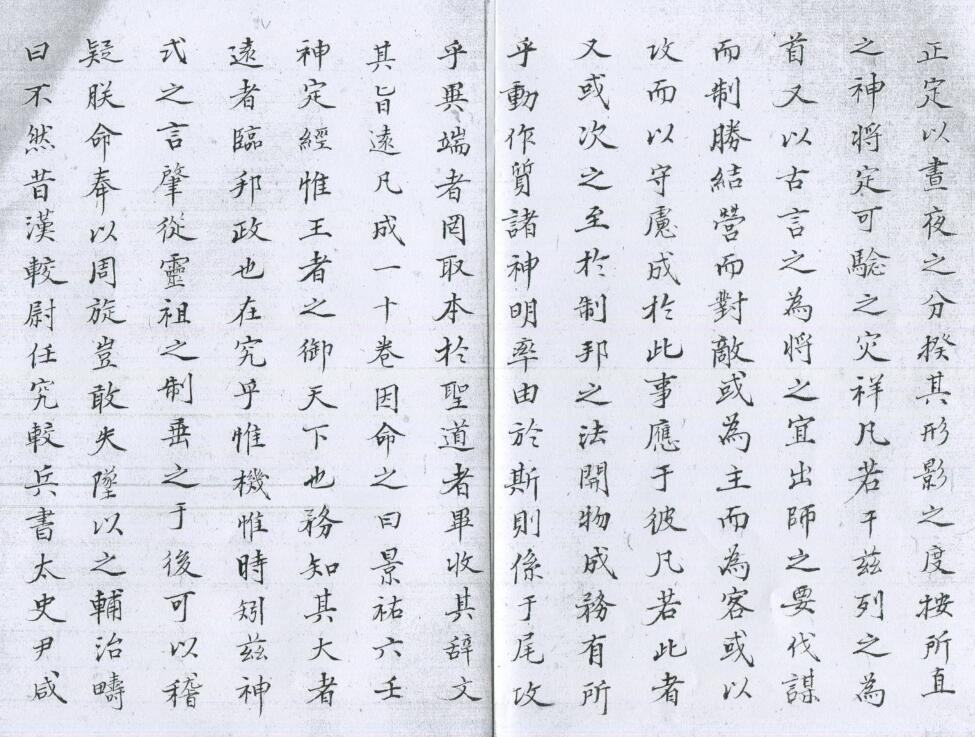 正定以晝夜之分揆其形影之度按所直
之神將定可驗之災祥凡若干茲列之為
首又以古言之為將之宜出師之要伐謀
而制勝結營而對敵或為主而為客或以
攻而以守慮成於此事應于彼凡若此者
又或次之至於制邦之法開物成務有所
乎動作質諸神明率由於斯則係于尾攻
乎異端者罔取本於聖道者畢收其辞文
其旨遠凡成一十卷因命之曰景祐六壬
神定經惟王者之御天下也務知其大者
遠者臨邦政也在究乎惟機惟時矧茲神
式之言肇從靈祖之制垂之于後可以稽
疑朕命奉以周旋豈敢失墜以之輔治疇
曰不然昔漢較尉任究較兵書太史尹咸